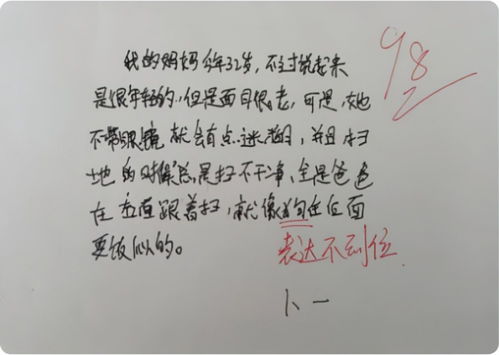 98
我的妈妈今年32岁，不过说起来
是很年轻的，但是面目很老，可是，她
不带眼镜就会有点迷糊，并且扫
地的时候总是扫不干净，全是爸爸
在后面跟着扫，就像狗在后面
要饭似的。
表达不到位
卜一